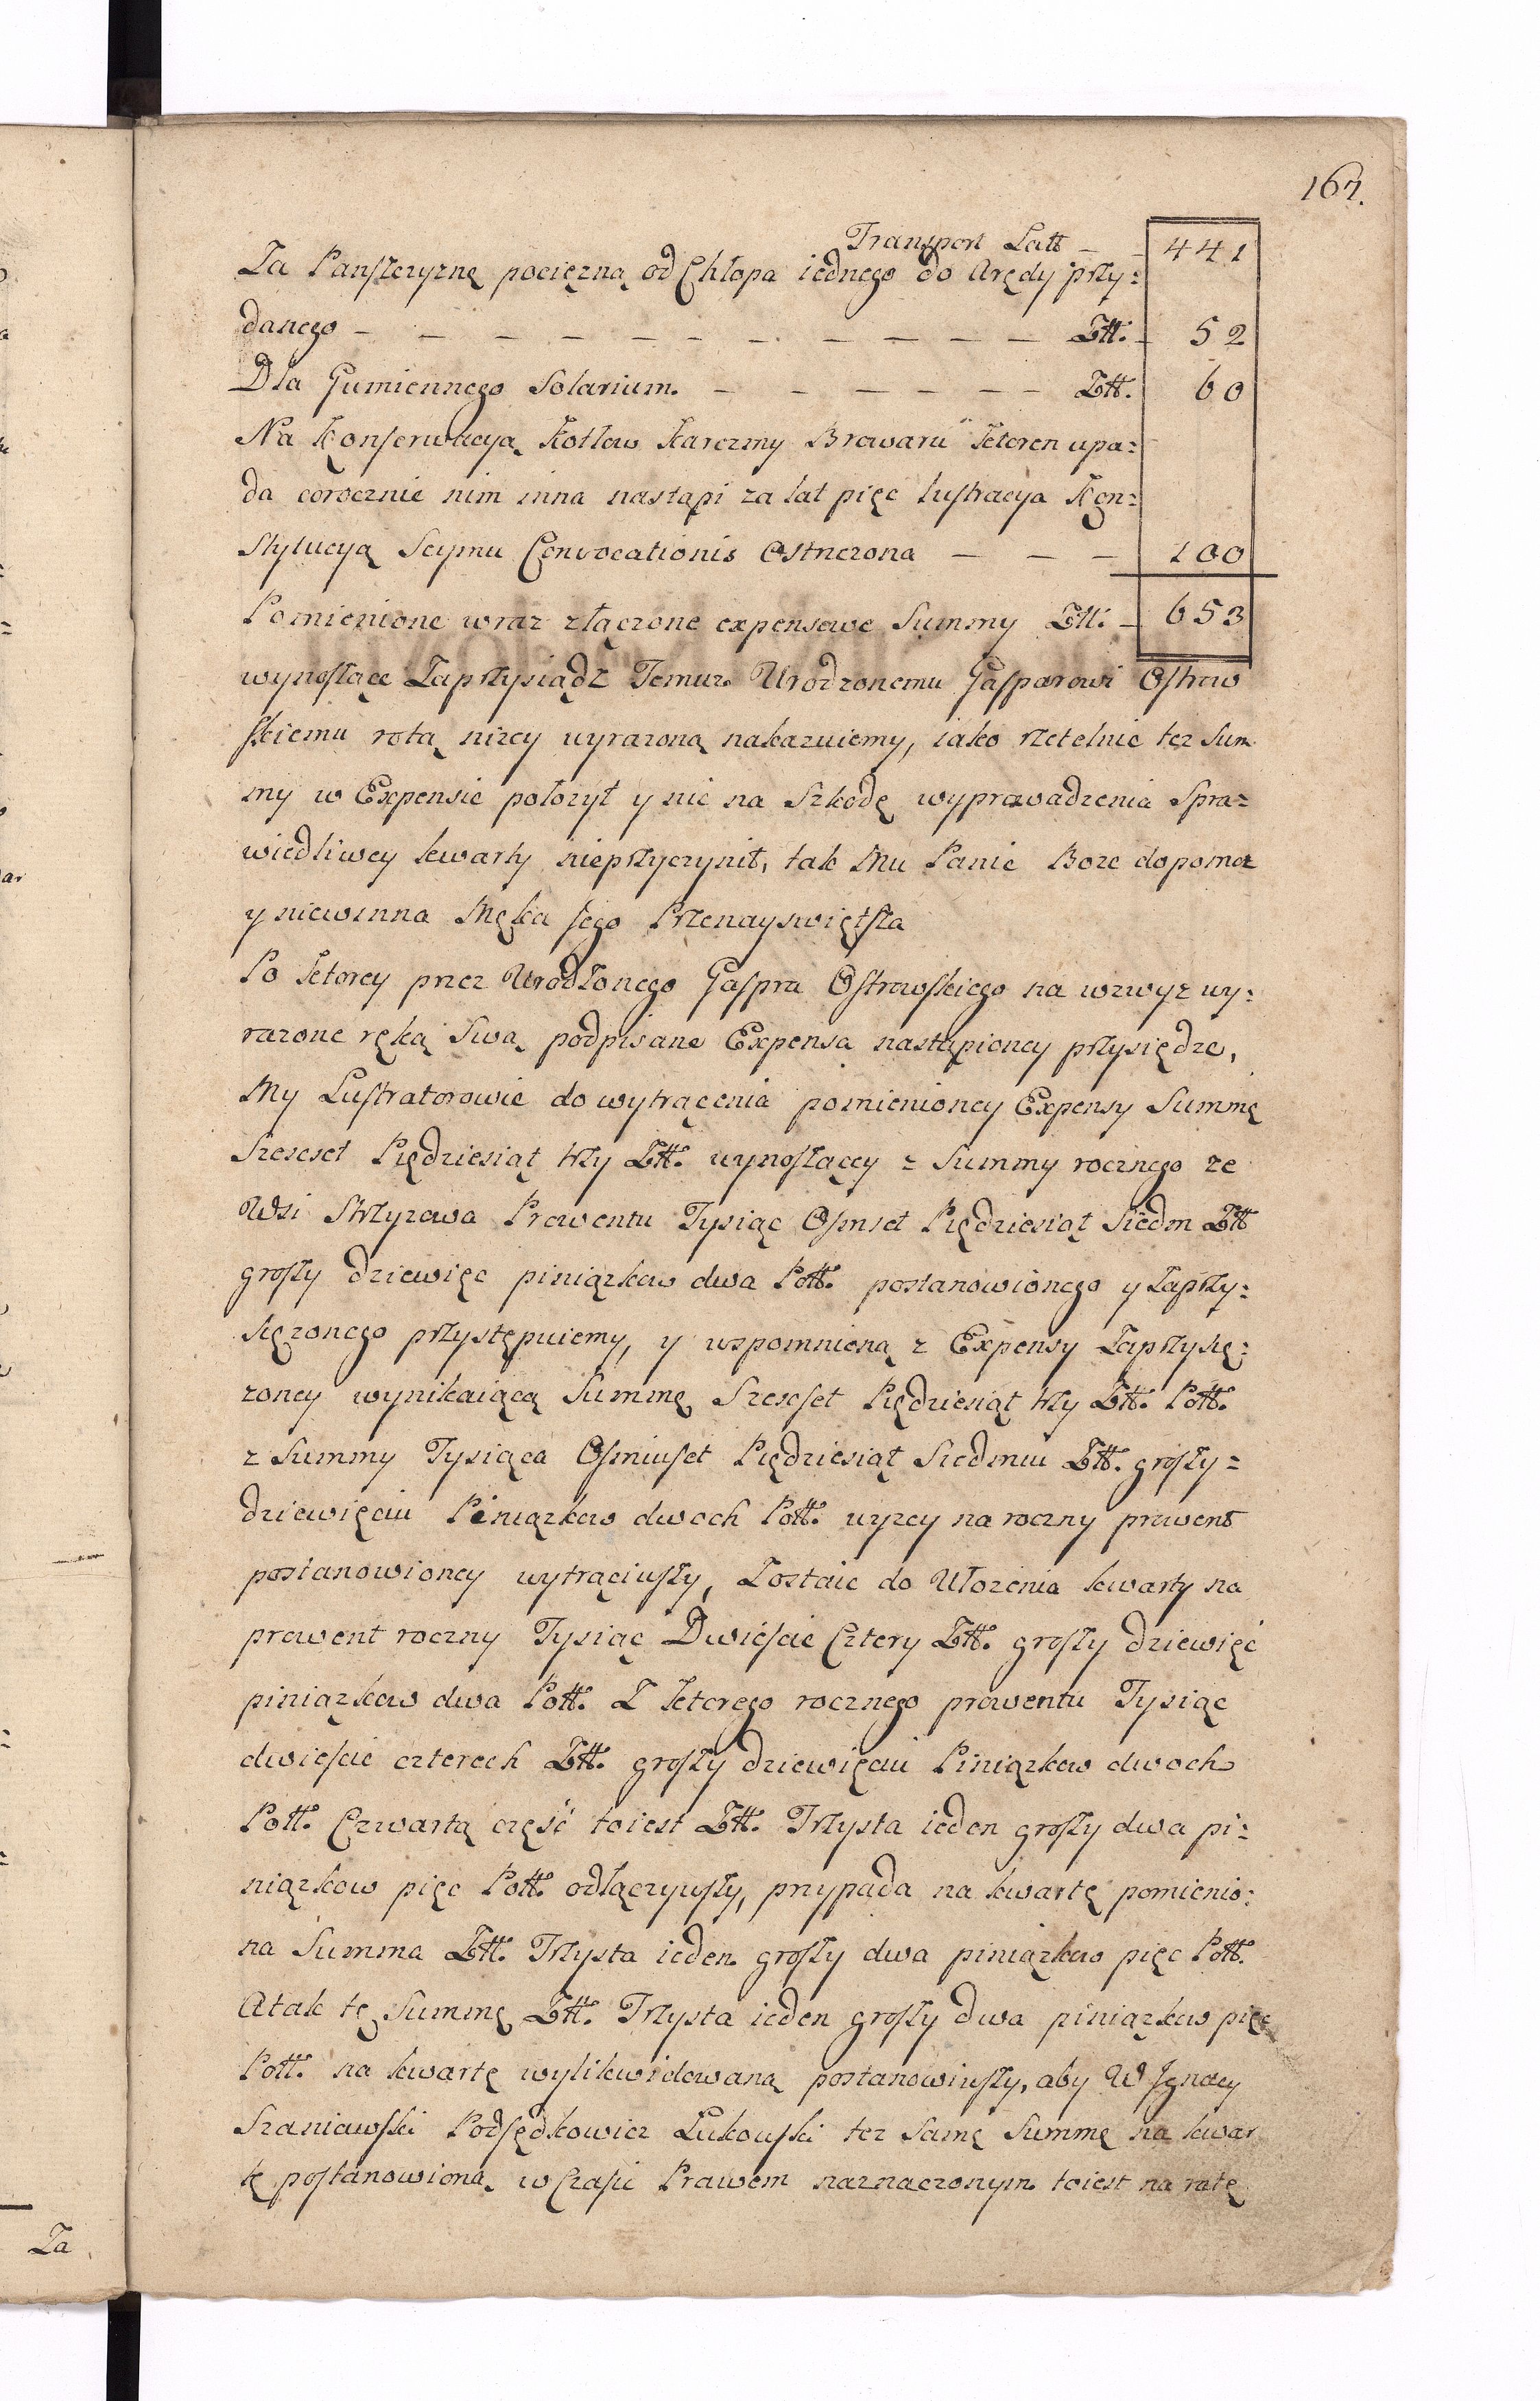 167.
Transport Latt — 441
Za Panszczyznę pociężną od Chłopa iednego do Arędy przy:
danego — — — — — — — — — — Ztt. 52
Dla Gumiennego Solarium. — — — — — Ztt. 60
Na Konserwacyą Kotłow Karczmy Browaru ktoren upa:
da corocznie nim inna nastąpi za lat pięc lustracya Kon:
stytucyą Seymu Convocationis Ostrzezona — — — 100
Pomienione wraz złączone expensowe Summy Ztt: — 653
wynoszące Zaprzysiądz Temuz Urodzonemu Gasparowi Ostrow
skiemu rotą nizey wyrazoną nakazuiemy, iako rzetelnie tez Sum
my w Expensie połozył y nic na Szkodę wyprowadzenia Spra=
wiedliwey kwarty nieprzyczynił, tak Mu Panie Boze dopomoz
y niewinna Męka Jego Przenayswiętsza
Po ktorey przez Urodzonego Gaspra Ostrowskiego na wzwyz wy:
razone ręką Swą podpisane Expensa nastąpioney przysiędze,
My Lustratorowie do wytrącenia pomienioney Expensy Summę
Szescset Piędziesiąt trzy Ztt. wynoszącey z Summy rocznego ze
Wsi Strzyzewa Prowentu Tysiąc Osmset Piędziesiąt Siedm Ztt
groszy dziewięc piniązkow dwa Pott. postanowionego y Zaprzy:
siężonego przystępuiemy, y wspomnioną z Expensy Zaprzysię:
zoney wynikaiącą Summę Szescset Piędziesiąt trzy Ztt. Pott.
z Summy Tysiąca Osmiuset Piędziesiąt Siedmiu Ztt. groszy=
dziewięciu Piniązkow dwoch Pott. wyzey na roczny prowent
postanowioney wytrąciwszy, Zostaie do Ułozenia kwarty na
prowent roczny Tysiąc Dwiescie Cztery Ztt. groszy dziewięć
piniązkow dwa Pott. Z ktorego rocznego prowentu Tysiąc
dwiescie czterech Ztt. groszy dziewięciu Piniązkow dwoch
Pott. Czwartą część toiest Ztt. Trzysta ieden groszy dwa pi:
niązkow pięc Pott. odłączywszy, przypada na kwartę pomienio:
na Summa Ztt. Trzysta ieden groszy dwa piniązkow pięc Pott.
Atak tę Summę Ztt. Trzysta ieden groszy dwa piniązkow pięc
Pott. na kwartę wylikwidowaną postanowiwszy, aby W Jgnacy
Szaniawski Podsędkowicz Łukowski tez Samę Summę na kwar
tę postanowioną w Czasie Prawem naznaczonym toiest na ratę
Za